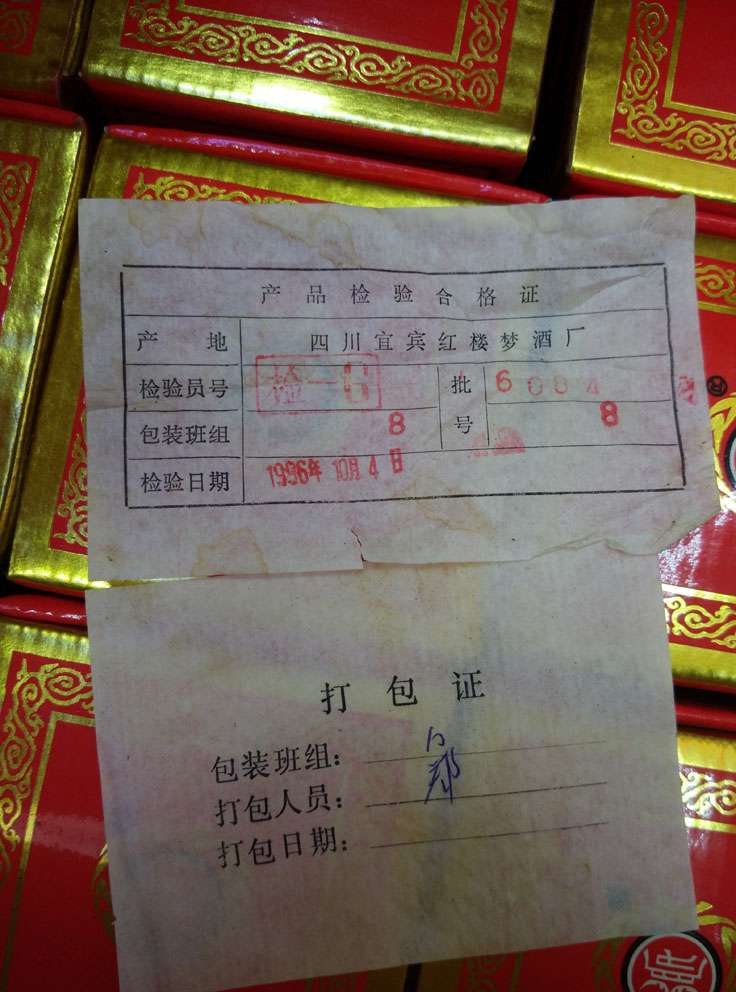 产品检验合格证
产地 四川宜宾红楼梦酒厂
检验员号 检一6 批号 6004
包装班组 8 8
检验日期 1996年10月4日
打包证
包装班组:
打包人员:
打包日期:
®